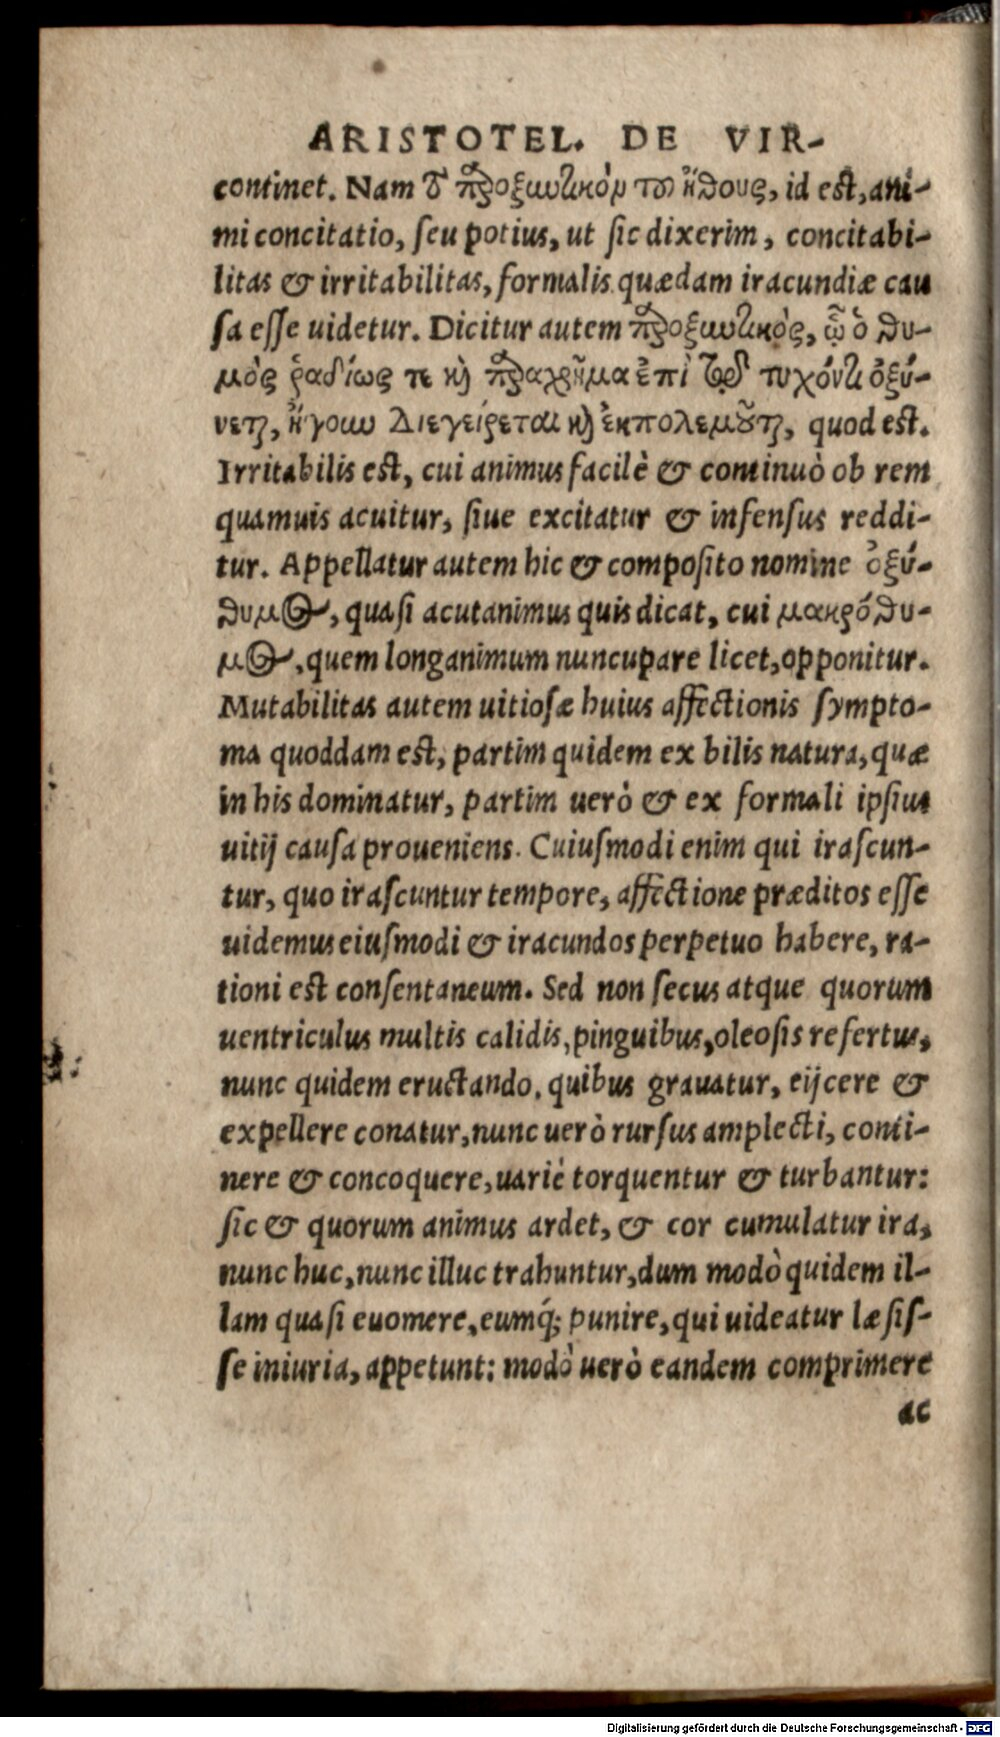 ARISTOTEL. DE VIR-
continet. Nam τὸ παροξυντικὸν τοῦ ἤθους, id est, ani-
mi concitatio, seu potius, ut sic dixerim, concitabi-
litas & irritabilitas, formalis quædam iracundiæ cau
sa esse uidetur. Dicitur autem παροξυντικὸς, ᾧ ὁ θυ-
μὸς ῥαδίως τε καὶ παραχρῆμα ἐπὶ τῷ τυχόντι ὀξύ-
νεται, ἤγουν διεγείρεται καὶ ἐκπολεμοῦται, quod est.
Irritabilis est, cui animus facilè & continuò ob rem
quamuis acuitur, siue excitatur & infensus reddi-
tur. Appellatur autem hic & composito nomine ὀξύ-
θυμος, quasi acutanimus quis dicat, cui μακρόθυ-
μος, quem longanimum nuncupare licet, opponitur.
Mutabilitas autem uitiosæ huius affectionis sympto-
ma quoddam est, partim quidem ex bilis natura, quæ
in his dominatur, partim uerò & ex formali ipsius
uitij causa proueniens. Cuiusmodi enim qui irascun-
tur, quo irascuntur tempore, affectione præditos esse
uidemus eiusmodi & iracundos perpetuo habere, ra-
tioni est consentaneum. Sed non secus atque quorum
uentriculus multis calidis, pinguibus, oleosis refertus,
nunc quidem eructando, quibus grauatur, eijcere &
expellere conatur, nunc uerò rursus amplecti, conti-
nere & concoquere, uariè torquentur & turbantur:
sic & quorum animus ardet, & cor cumulatur ira,
nunc huc, nunc illuc trahuntur, dum modò quidem il-
lam quasi euomere, eumq́; punire, qui uideatur læsis-
se iniuria, appetunt: modò uerò eandem comprimere
ac
Digitalisierung gefördert durch die Deutsche Forschungsgemeinschaft - DFG